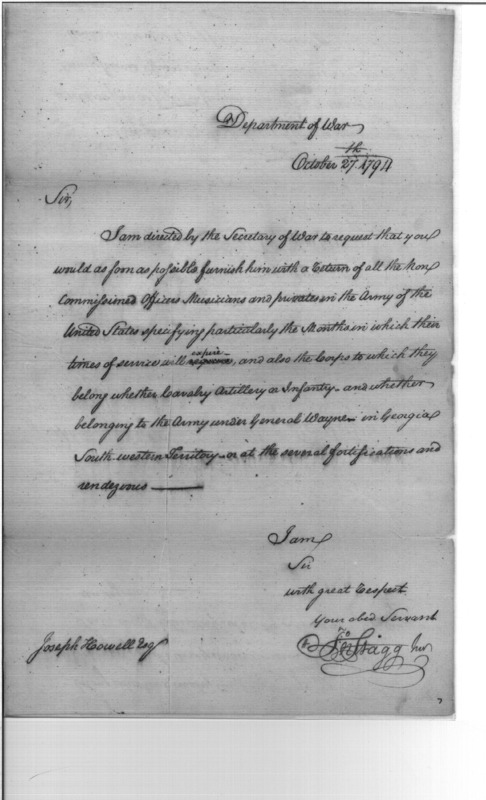 Department of War
October 27th 1794
Sir,
I am directed by the Secretary of War to request that you
would as soon as possible furnish him with a Return of all the Non
Commissioned Officers Musicians and privates in the Army of the
United States specifying particularly the Months in which their
expire
times of service will, and also the Corps to which they
belong whether Cavalry Artillery or Infantry and whether
belonging to the Army under General Wayne in Georgia
South-western Territory or at the several fortifications and
rendezvous
I am
Sir
with great Respect
Your obed Servant
Jno Stagg Junr
Joseph Howell Esq